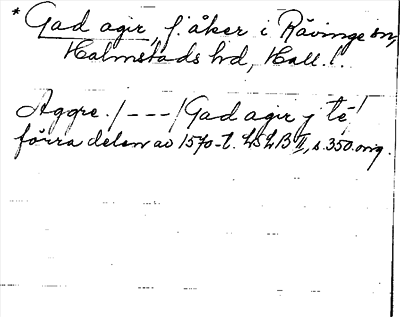 * Gad agir, f. åker i Rävinge sn,
Halmstads hd, Hall. l.
Aggre. / - - - / Gad agir j te /
förra delen av 1570-t. LSLB II, s. 350. orig.